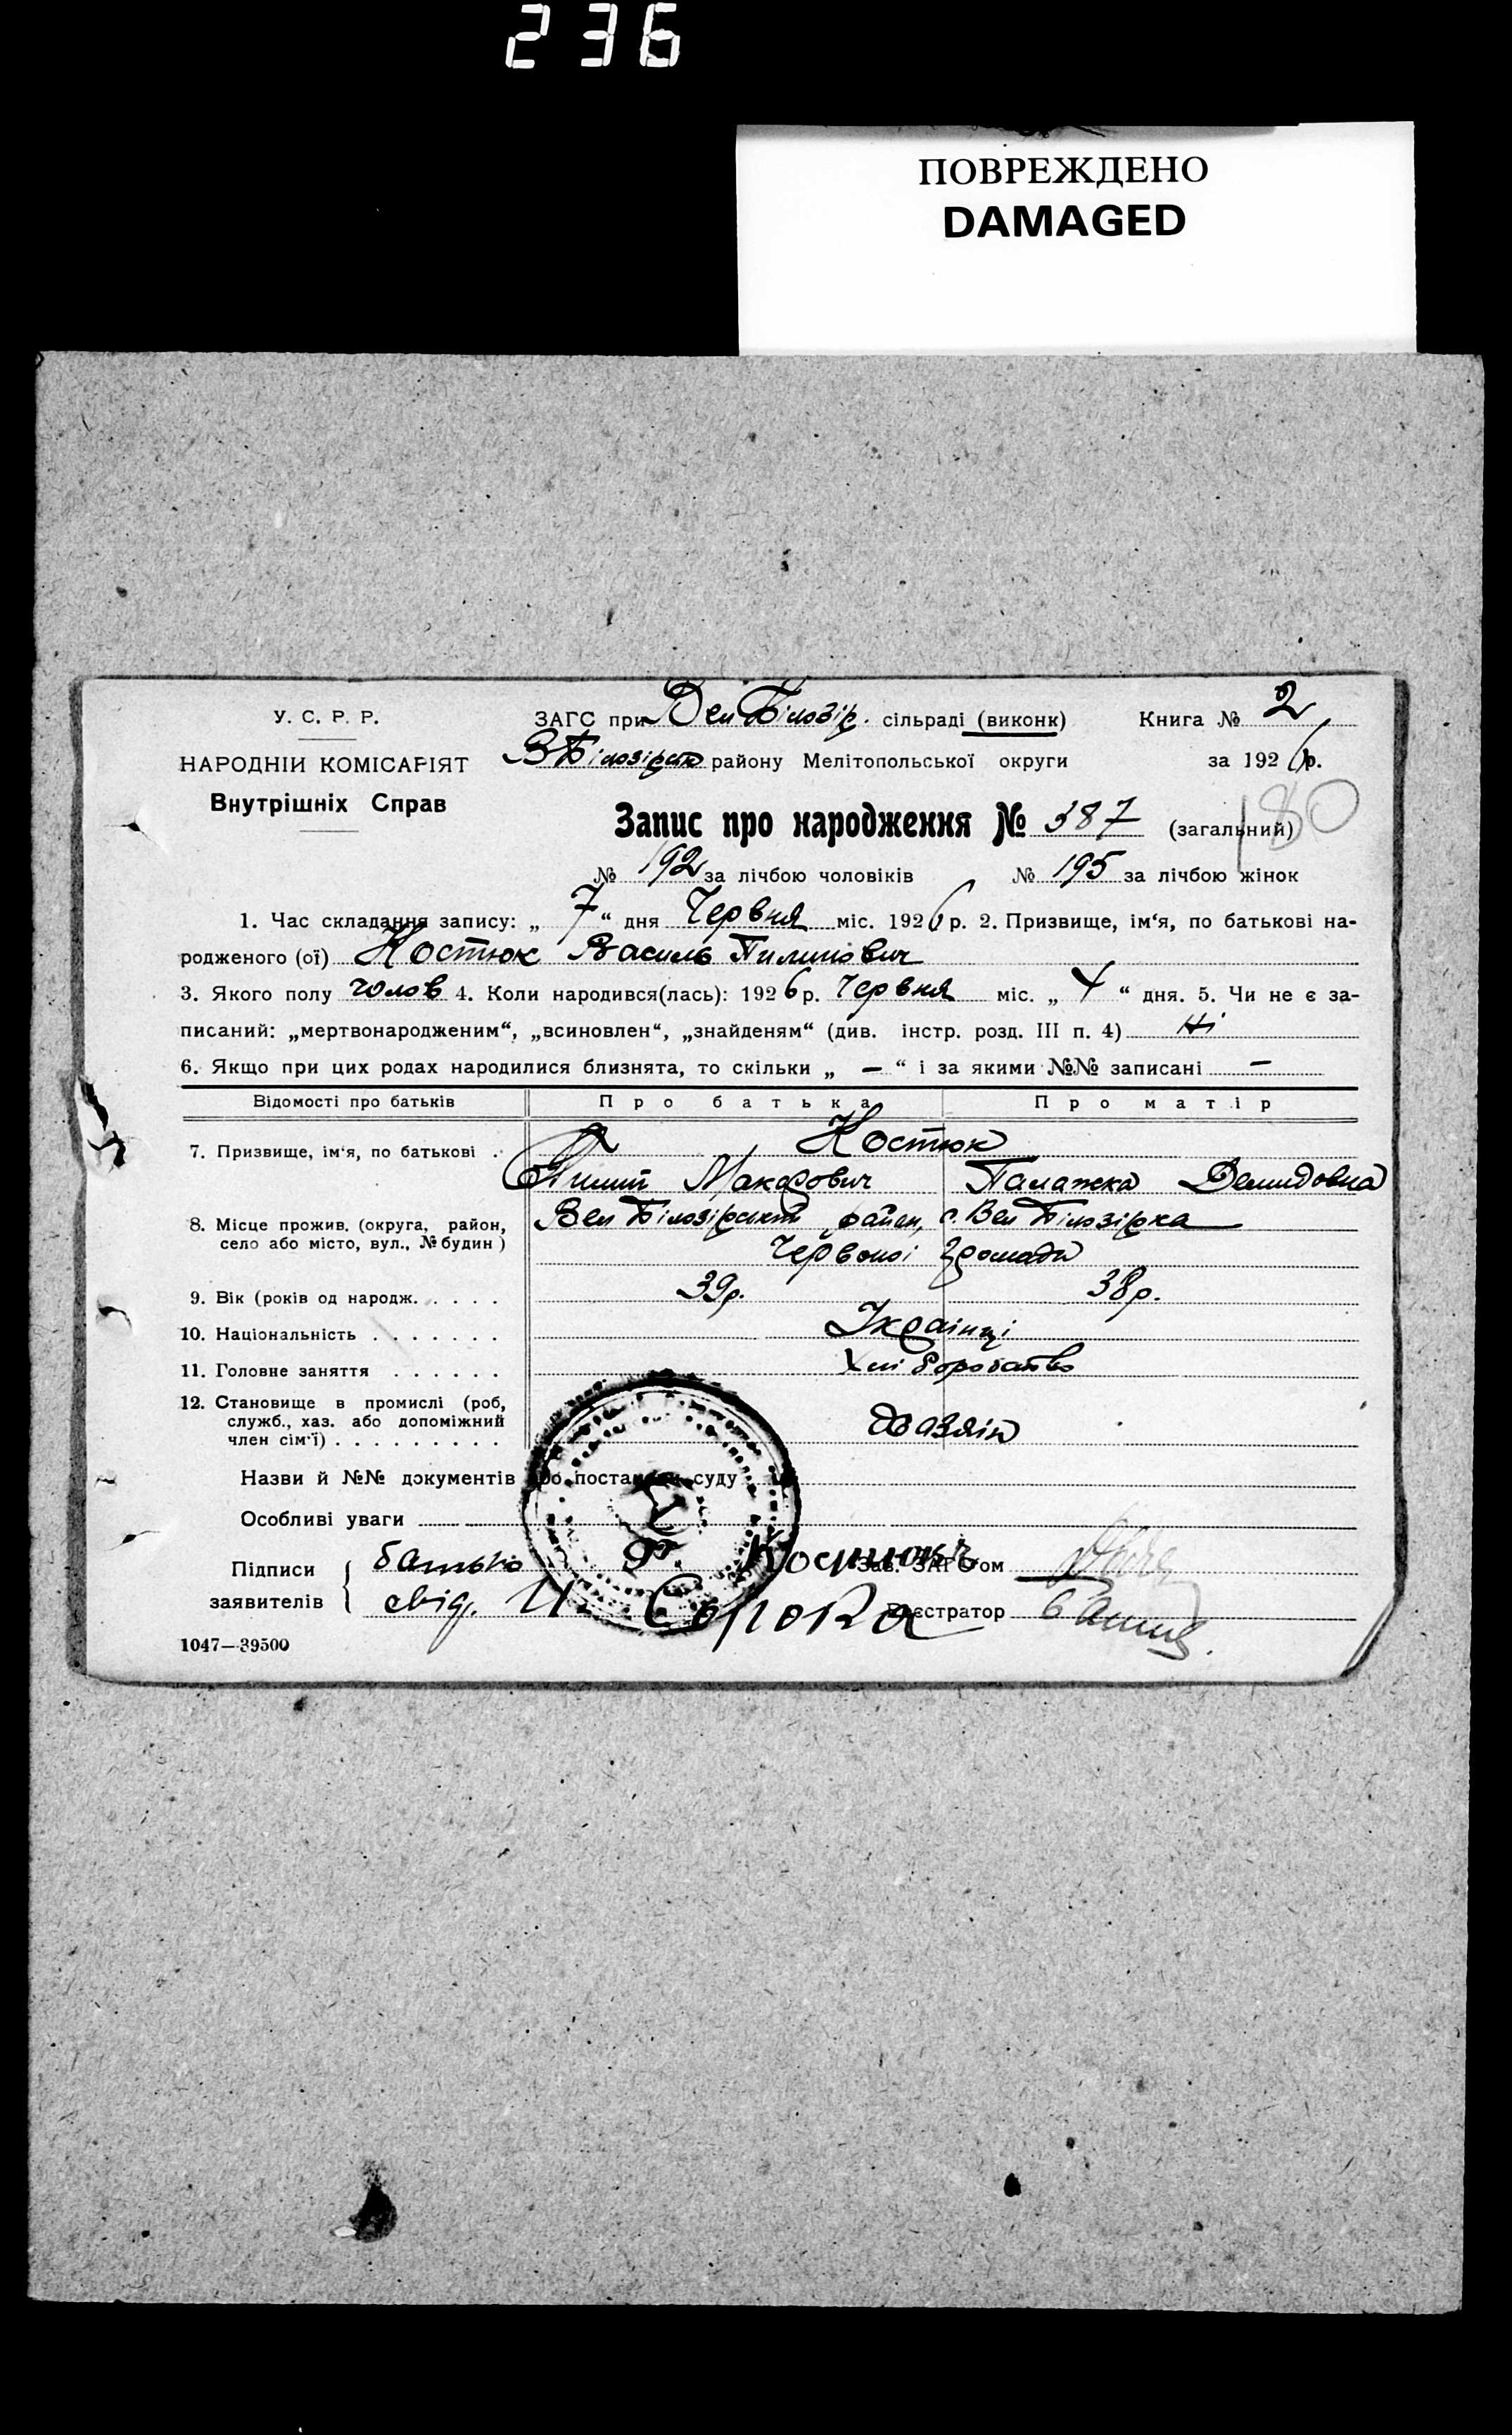 236
ПОВРЕЖДЕНО
DAMAGED
У. С. Р. Р.
НАРОДНІЙ КОМІСАРІЯТ
Внутрішніх Справ
ЗАГС при Вел Білозір. сільраді (виконк) Книга № 2
ВБілозірськ району Мелітопольської округи за 1926 р.
180
Запис про народження № 387 (загальний)
№ 192 за лічбою чоловіків № 195 за лічбою жінок
1. Час складання запису: „ 7 “ дня Червня міс. 1926 р. 2. Призвище, ім‘я, по батькові на-
родженого (ої) Костюк Василь Пилипович
3. Якого полу чолов 4. Коли народився(лась): 1926 р. Червня міс. „ “ дня. 5. Чи не є за-
писаний: „мертвонародженим“, „всиновлен“, „знайденям“ (див. інстр. розд. III п. 4) Ні
6. Якщо при цих родах народилися близнята, то скільки „ — “ і за якими №№ записані —
Відомості про батьків Про батька Про матір
7. Призвище, ім‘я, по батькові . Костюк
Пилип Макарович Палажка Демидовна
8. Місце прожив. (округа, район, село або місто, вул., № будин) Вел Білозірський район, с. Вел Білозірка
Червоної Громади
9. Вік (років од народж. . . . . 39р. 38р.
10. Національність . . . . . . . Українці
11. Головне заняття . . . . . . Хліборобство
12. Становище в промислі (роб,
служб., хаз. або допоміжний
член сім‘ї) . . . . . . . . . Хазяїн
Назви й №№ документів або постанови суду
Особливі уваги
Підписи заявителів батько Ф. Костюкъ Зав. ЗАГС‘ом
свід. И. Сорока Реєстратор
1047—39500